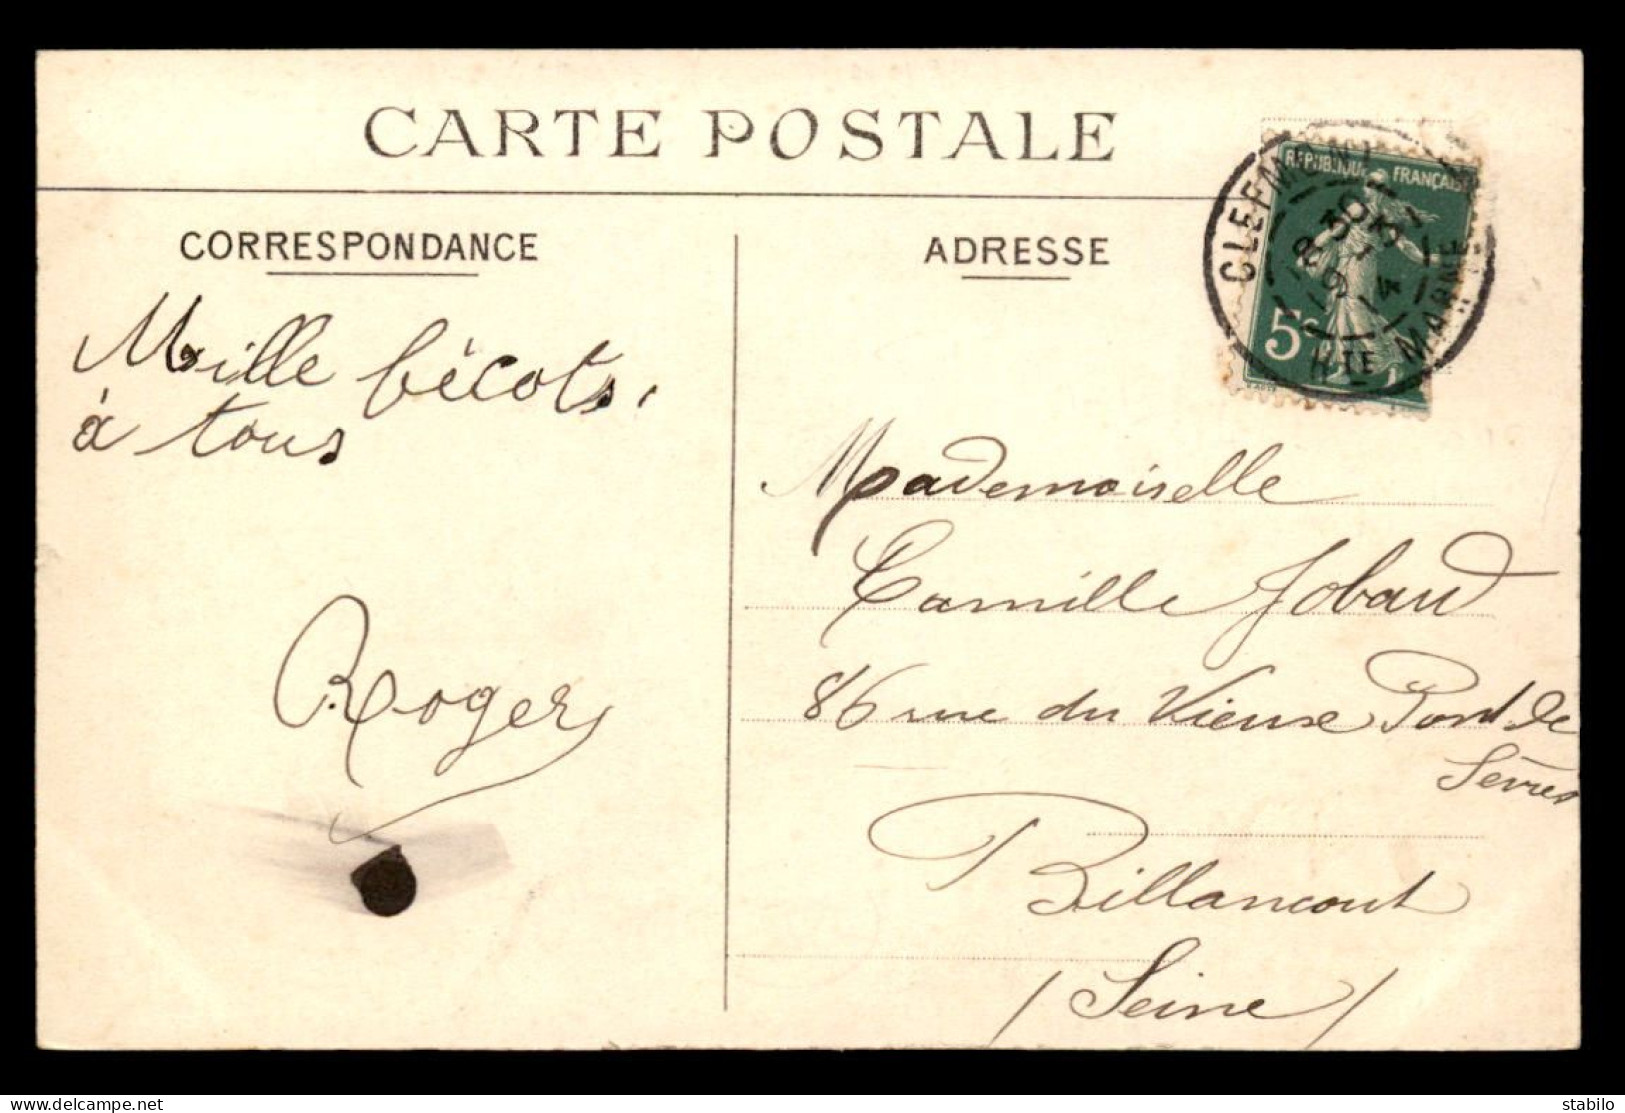 CARTE POSTALE
CORRESPONDANCE
ADRESSE
RÉPUBLIQUE FRANÇAISE
5c
CLEFMONT
HTE MARNE
Mille bécots
à tous
Roger
Mademoiselle
Camille Jobard
86 rue du Vieux Pont de
Sèvres
Billancourt
/ Seine /
delcampe.net
stabilo